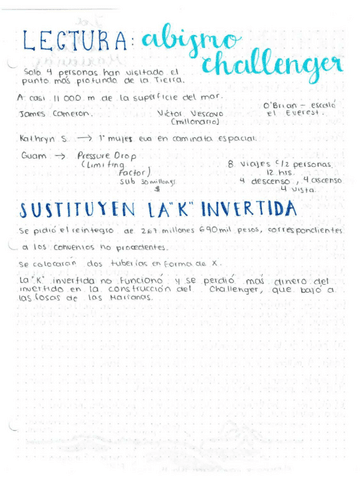 LECTURA: abismo challenger
Solo 4 personas han visitado el
punto más profundo de la Tierra.
A casi 11 000 m de la superficie del mar.
James Cameron. Víctor Vescovo (millonario) O'Brian - escaló el Everest.
Kathryn S. → 1ª mujer en caminata espacial.
Guam → Pressure Drop
(Limiting
Factor)
sub 30 millones
$
8 viajes c/2 personas
12 hrs.
4 descenso, 4 ascenso
4 vista.
SUSTITUYEN LA "K" INVERTIDA
Se pidió el reintegro de 269 millones 690 mil pesos, correspondientes
a los convenios no procedentes.
Se colocarán dos tuberías en forma de X.
La "K" invertida no funcionó y se perdió más dinero del
invertido en la construcción del Challenger, que bajó a
las fosas de las Marianas.